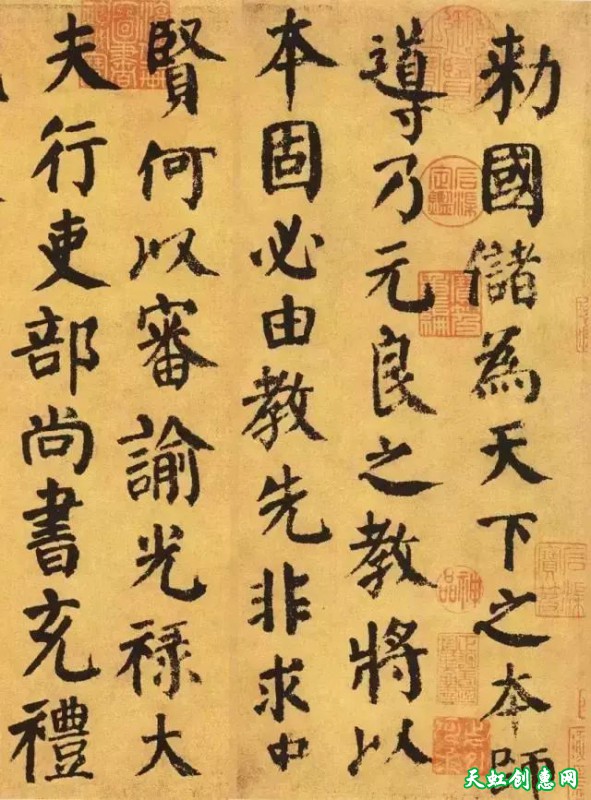 勑國儲為天下之本師
導乃元良之教將以
本固必由教先非求中
賢何以審諭光禄大
夫行吏部尚書充禮
神品
天虹创惠网